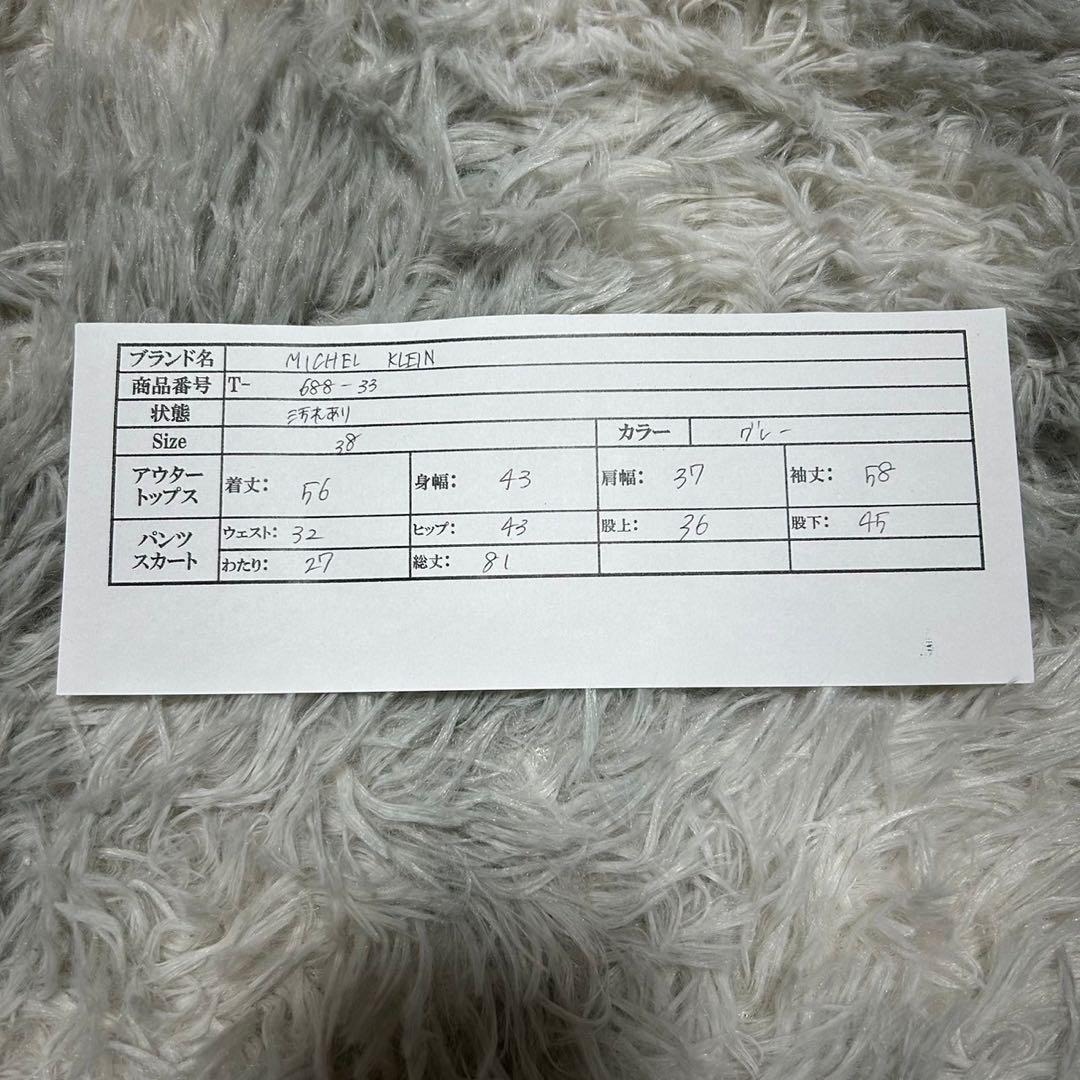 ブランド名 MICHEL KLEIN
商品番号 T- 688-33
状態 汚れあり
Size 38 カラー グレー
アウター トップス 着丈: 56 身幅: 43 肩幅: 37 袖丈: 58
パンツ スカート ウェスト: 32 ヒップ: 43 股上: 36 股下: 45
わたり: 27 総丈: 81